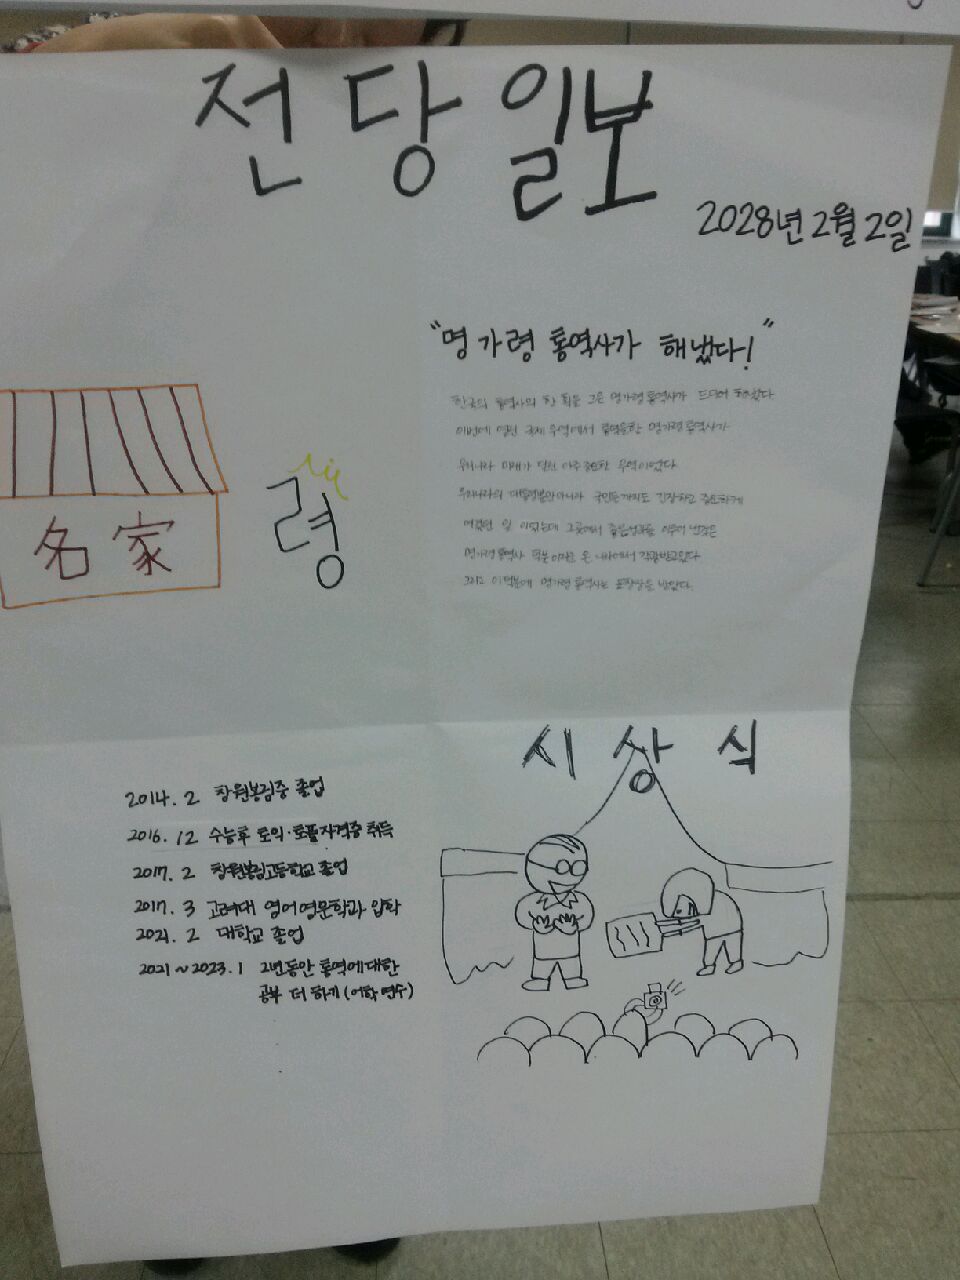 전당일보
2028년 2월 2일
"명가령 통역사가 해냈다!"
한국의 통역사의 한 획을 그은 명가령 통역사가 드디어 해냈다
이번에 열린 국제 무역에서 통역을한 명가령 통역사가
우리나라 미래가 달린 아주 중요한 무역이었다
우리나라의 대통령뿐만아니라 국민들까지도 긴장하고 중요하게
여겼던 일 이었는데 그곳에서 좋은성과를 이루어
명가령 통역사 덕분 온 나라에서 각광받고있다
그리고 이덕분에 명가령 통역사는 표창장을 받았다.
名家 령
2014. 2 창원봉림중 졸업
2016. 12 수능후 토익·토플자격증 취득
2017. 2 창원봉림고등학교 졸업
2017. 3 고려대 영어영문학과 입학
2021. 2 대학교 졸업
2021~2023. 1 2년동안 통역에대한
공부 더 하기 (어학연수)
시상식